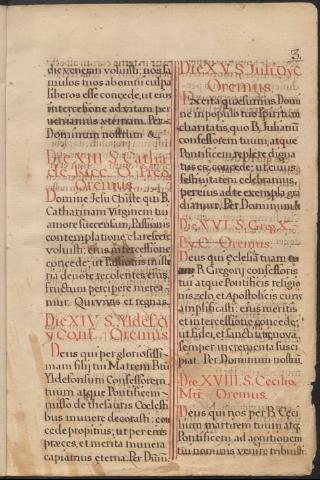 3.
die venerari voluisti: nos fa
mulos tuos ab omni culpa
liberos esse concede, ut eius
intercessione ad vitam per
veniamus æternam. Per
Dominum nostrum &.
Die XIII S. Catha
de Ricc. O. Præd.
Oremus.
Domine Jesu Christe qui B.
Catharinam Virginem tuo
amore succensam, Passionis
contemplatione clarescere
voluisti: eius intercessione
concede; ut Passionis tuæ
devote recolentes eius
fructum percipere merea
mur. Qui vivis et regnas.
Die XIV S. Yldefo.
y Conf. Oremus
Deus qui per gloriosissi
mam filij tui Matrem Btū
Yldefonsum Confessorem
tuum atque Pontificem
misso de thesauris Cœlesti
bus munere decorasti: con
cede propitius; ut per eius
preces, et merita munera
capiamus eterna. Per Dñm
Die XV S. Juli. Oy C
Oremus.
Excita quæsumus Domi
ne in populo tuo spiritum
charitatis, quo B. Julianū
confessorem tuum, atque
Pontificem replere digna
tus es: concede; ut cuius
festivitatem celebramus,
per eius ad te exempla gra
diamur. Per Dominum &
Die XVI S. Greg. X.
P. y C. Oremus.
Deus qui eclesiā tuam
B. Gregorij confessoris
tui atque Pontificis religio
nis zelo, et Apostolicis curis
amplificasti: eius meritis
et intercessione concede;
ut fidei, et sanctitatis nova
semper incrementa susci
piat. Per Dominum nostrū.
Die XVIII. S. Cecilio.
Mtr. Oremus.
Deus qui nos per B. Ceci
lium martirem tuum atq;
Pontificem ad agnitionem
tui nominis venire tribuisti: